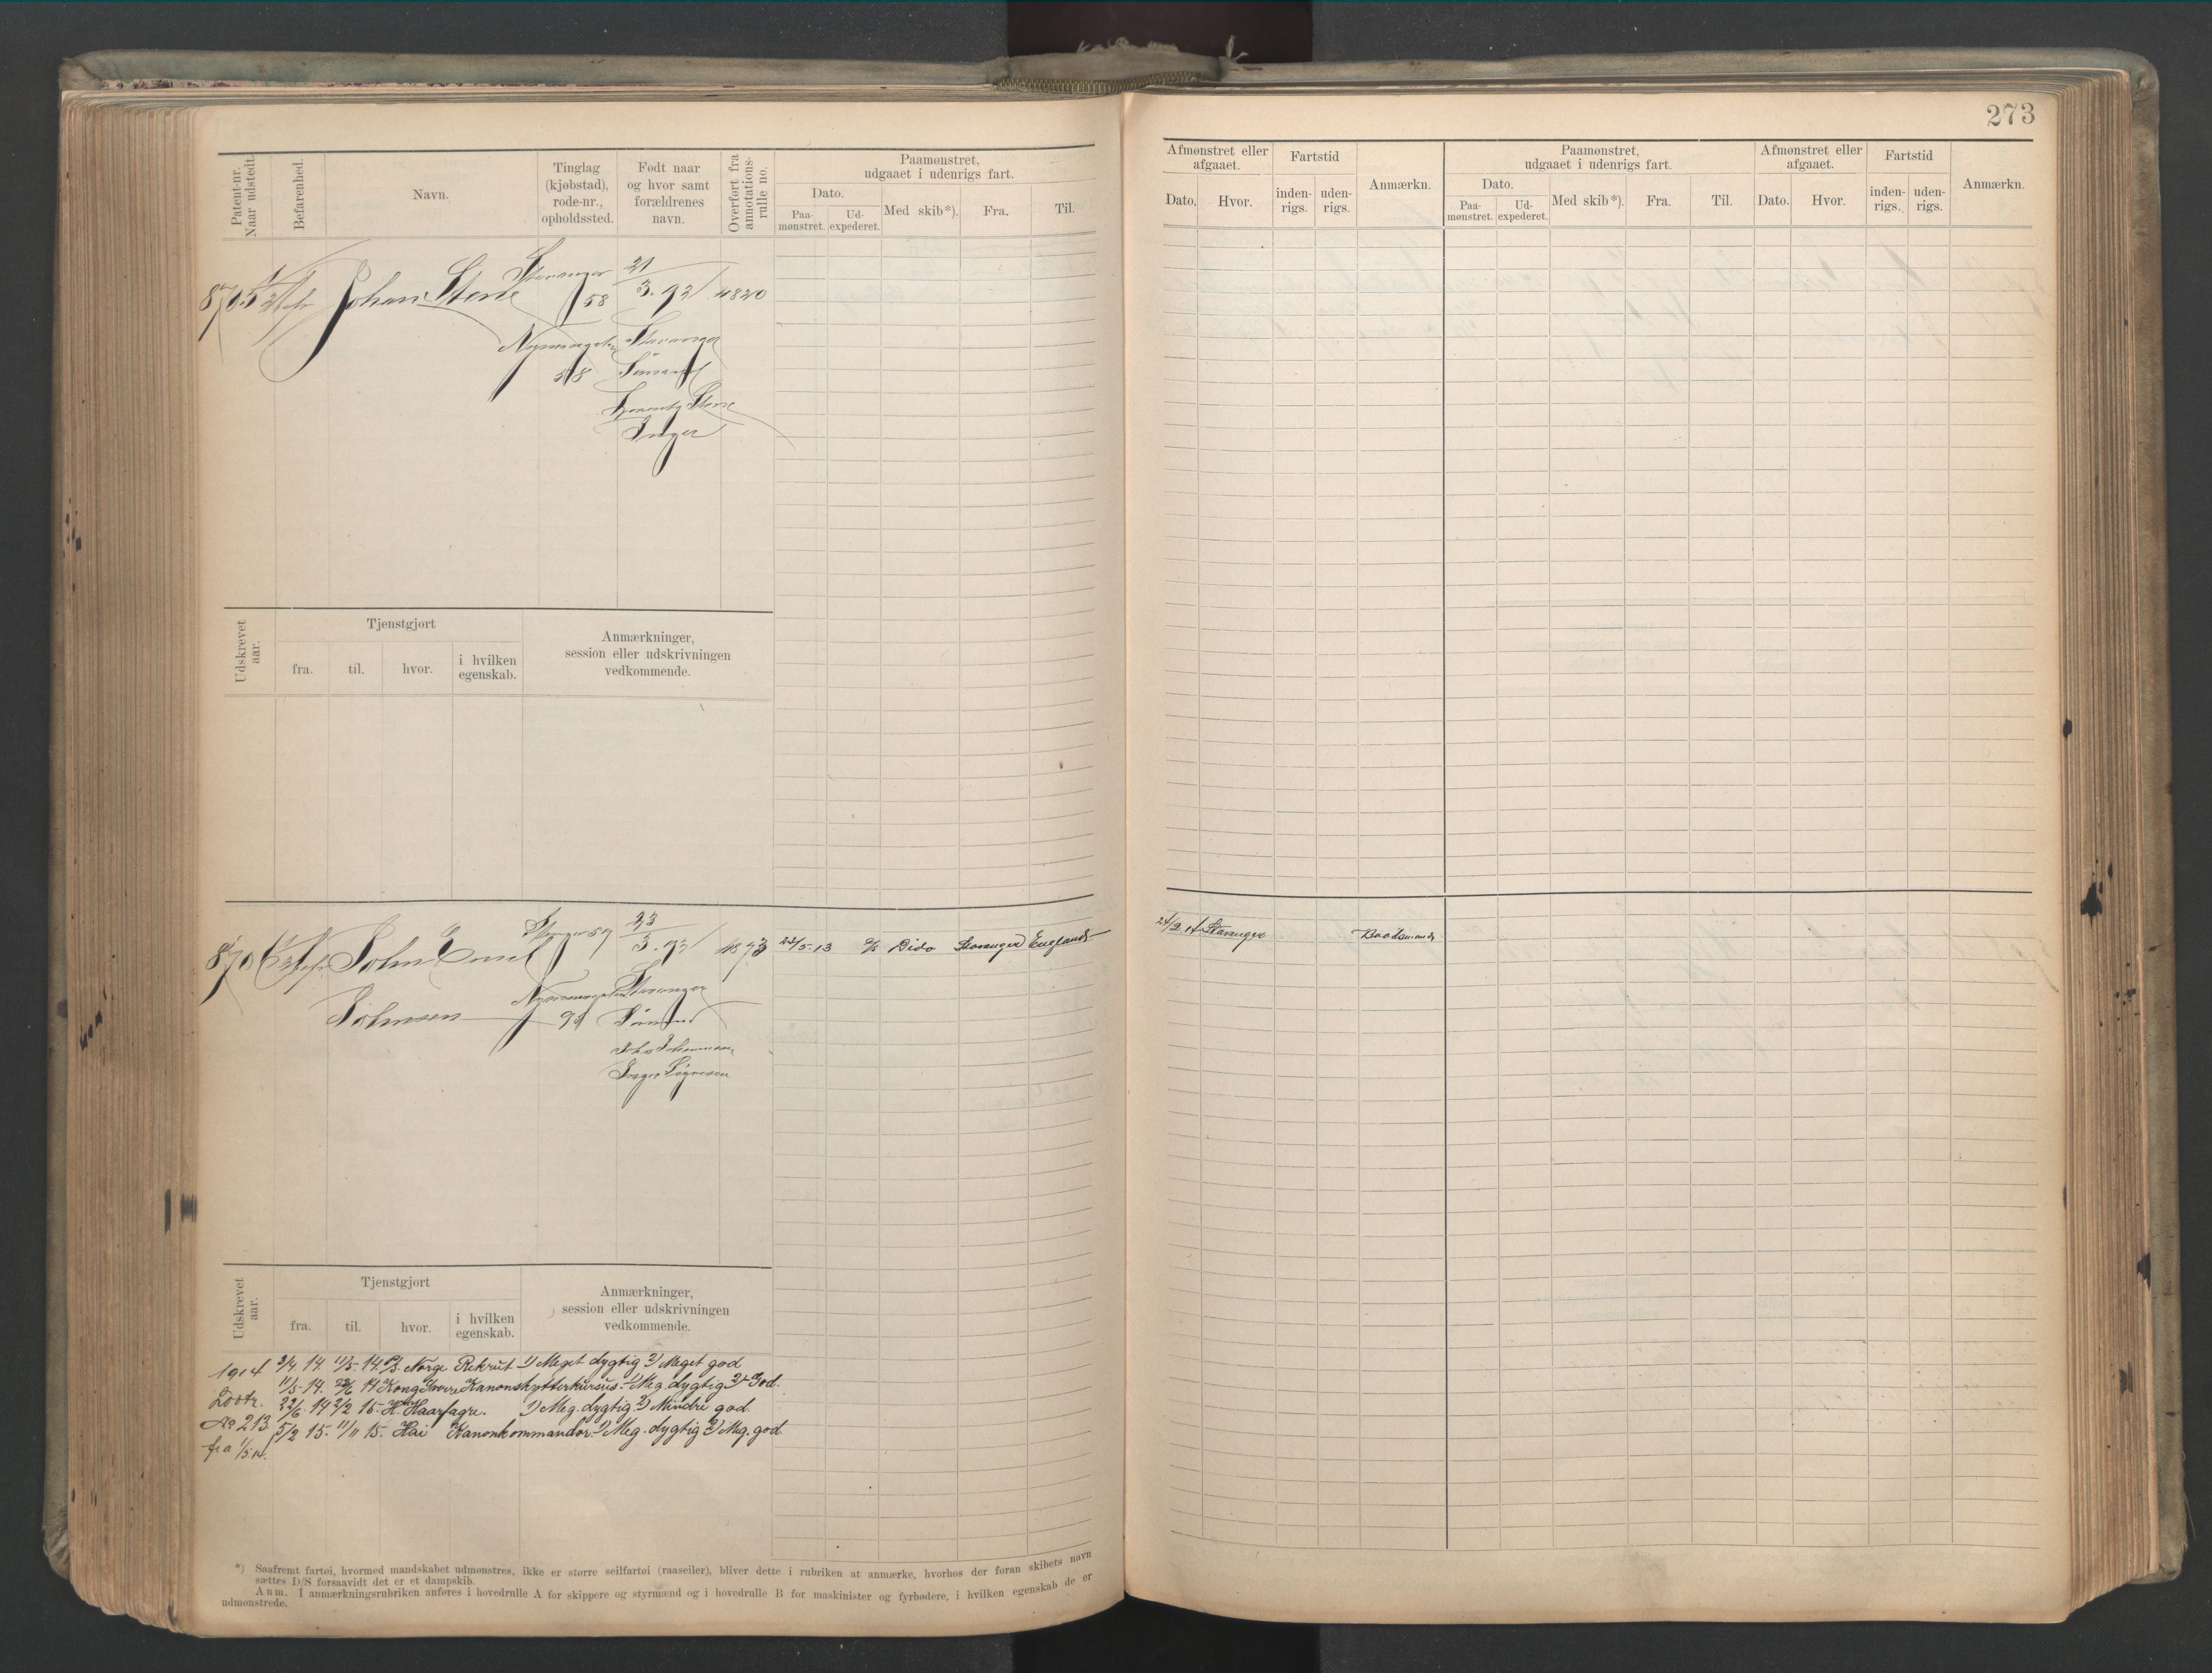 273
Patent-nr. Naar udstedt.
Befarenhed.
Navn.
Tinglag (kjøbstad), rode-nr., opholdssted.
Født naar og hvor samt forældrenes navn.
Overført fra annotations-rulle no.
Paamønstret, udgaaet i udenrigs fart.
Dato.
Paa-mønstret.
Ud-expederet.
Med skib*).
Fra.
Til.
Afmønstret eller afgaaet.
Dato.
Hvor.
Fartstid
inden-rigs.
uden-rigs.
Anmærkn.
Paamønstret, udgaaet i udenrigs fart.
Dato.
Paa-mønstret.
Ud-expederet.
Med skib*).
Fra.
Til.
Afmønstret eller afgaaet.
Dato.
Hvor.
Fartstid
inden-rigs.
uden-rigs.
Anmærkn.
8705
Johan Stene
Stavanger
58
21/3.92
4820
Stavanger
58
Stene
Inger
Udskrevet aar.
Tjenstgjort
fra.
til.
hvor.
i hvilken egenskab.
Anmærkninger, session eller udskrivningen vedkommende.
8706
John
Johnsen
23/3.92
4873
22/5-13
Dido
Stavanger
England
Stavanger
Baadsmand
Stavanger
92
Inger
Udskrevet aar.
Tjenstgjort
fra.
til.
hvor.
i hvilken egenskab.
Anmærkninger, session eller udskrivningen vedkommende.
1914 3/4 14. 11/5. 14. P/S. Norge Rekrut 1) Meget dygtig 2) Meget god
11/5-14. 22/6 14 Kong Sverre Kanonskytterkursus. 1) Meg. dygtig 2) God.
22/6-14 2/2 15- H. Haarfagre. 1) Meg. dygtig. 2) Mindre god.
No 213 5/2 15. 11/11 15. Hai Kanonkommandør. 1) Meg. dygtig 2) Meg. god
fra 1/5.14.
*) Saafremt fartøi, hvormed mandskabet udmønstres, ikke er større seilfartøi (raaseiler), bliver dette i rubriken at anmærke, hvorhos der foran skibets navn
sættes D/S forsaavidt det er et dampskib.
Anm. I anmærkningsrubriken anføres i hovedrulle A for skippere og styrmænd og i hovedrulle B for maskinister og fyrbødere, i hvilken egenskab de er
udmønstrede.